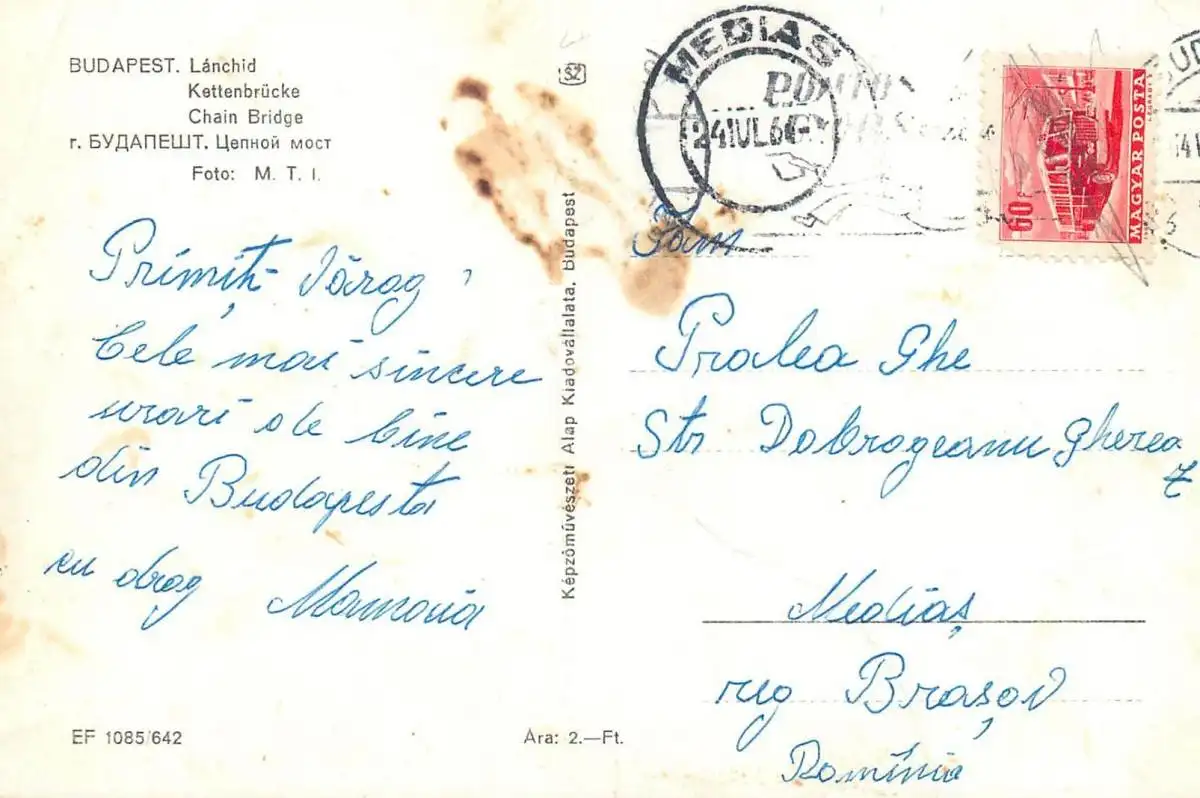 BUDAPEST. Lánchid
Kettenbrücke
Chain Bridge
г. БУДАПЕШТ. Цепной мост
Foto: M. T. I.
Primiți
Cele mai sincere
urari de bine
din Budapesta
cu drag
EF 1085/642
Ara: 2.—Ft.
Képzőművészeti Alap Kiadóvállalata, Budapest
SZ
MEDIAS
24IUL6
60
MAGYAR POSTA
Fam
Pralea Ghe
Str Dobrogeanu Gherea
7
Mediaș
reg Brașov
România